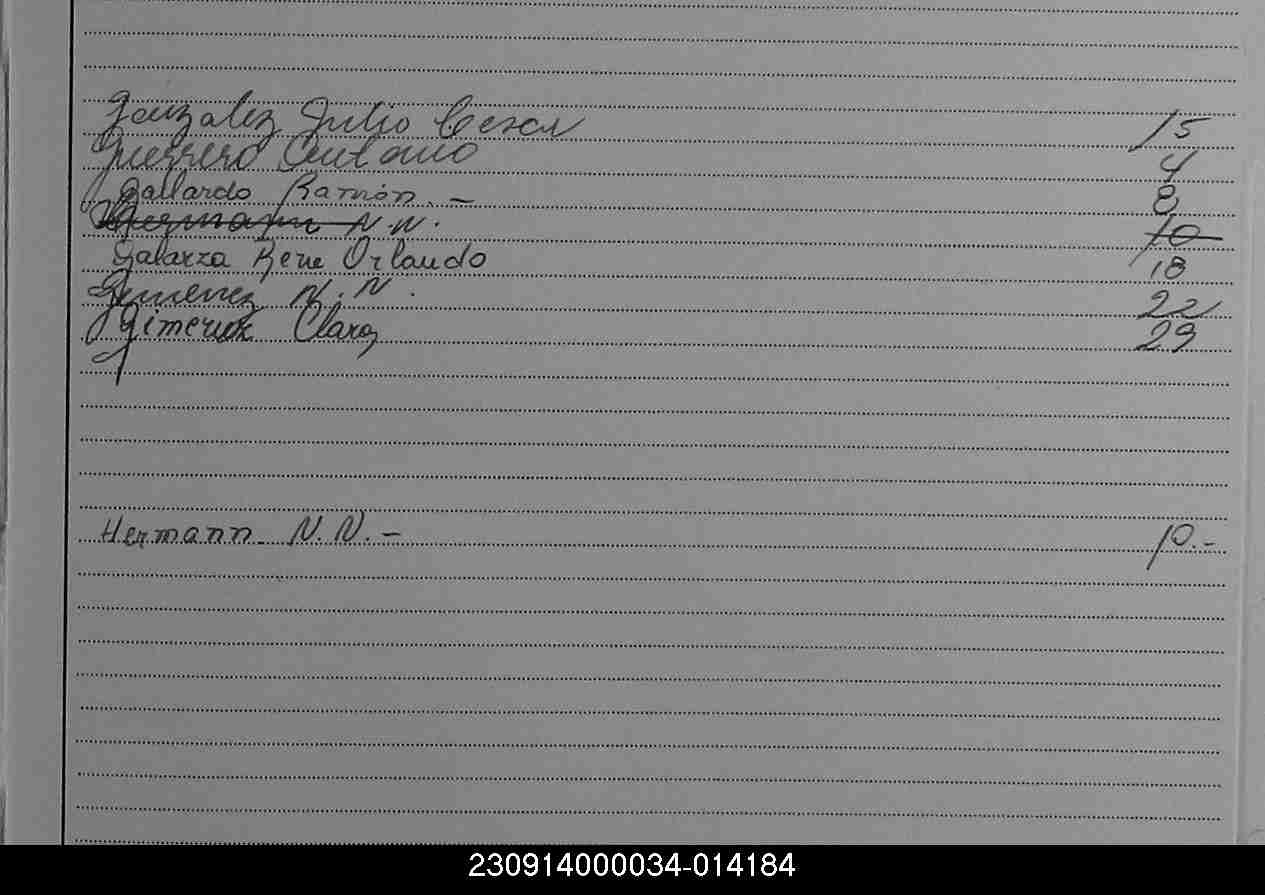 Gonzalez Julio Cesar 15
Guerrero Antonio 4
Gallardo Ramón. - 8
Germann N.N. 10
Galarza Rene Orlando 18
Gimenez N.N. 22
Gimenez Clara 29
Hermann N.N. - 10.-
230914000034-014184